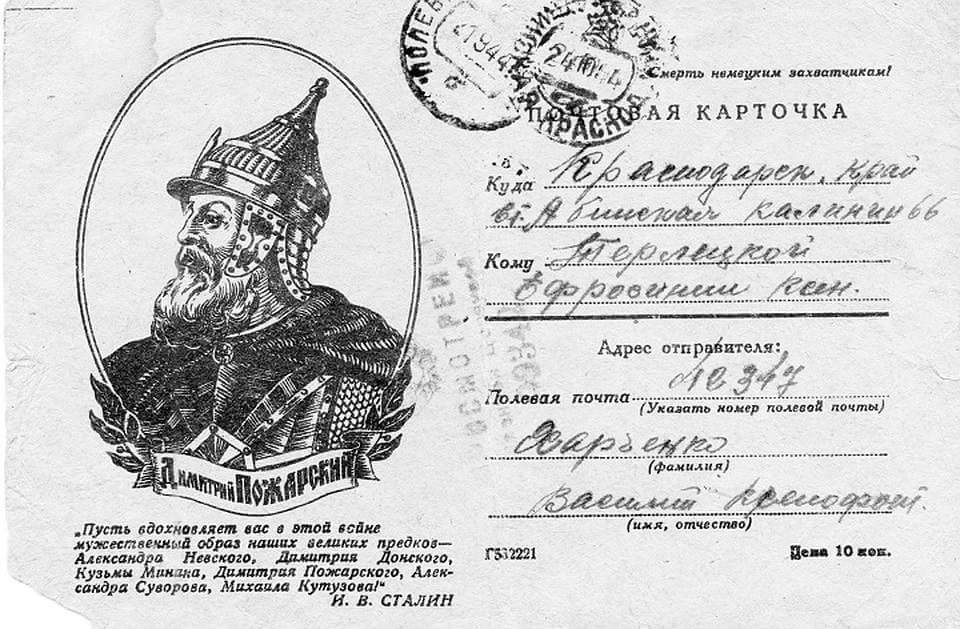 Смерть немецким захватчикам!
ПОЧТОВАЯ КАРТОЧКА
Куда Краснодарск. край
ст. Абинская калинин 66
Кому Терлецкой
Ефросинии Ксен.
Адрес отправителя:
Полевая почта № 347
(Указать номер полевой почты)
Харченко
(фамилия)
Василий Ксенофонт.
(имя, отчество)
Г532221 Цена 10 коп.
ДИМИТРИЙ ПОЖАРСКИЙ
„Пусть вдохновляет вас в этой войне
мужественный образ наших великих предков—
Александра Невского, Димитрия Донского,
Кузьмы Минина, Димитрия Пожарского, Алек-
сандра Суворова, Михаила Кутузова!"
И. В. СТАЛИН